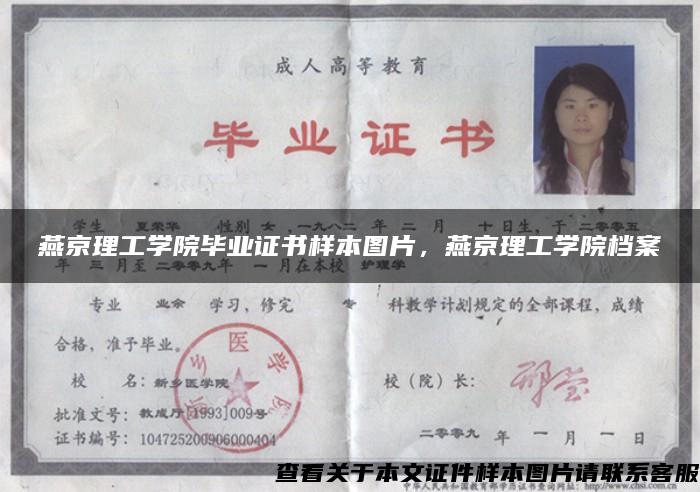 成人高等教育
毕业证书
学生 夏荣华 性别 女，一九八二年 二 月 十日生，于二〇〇五
燕京理工学院毕业证书样本图片，燕京理工学院档案
年 三 月至二〇〇九年 一 月在本校 护理学
专业 业余 学习，修完 专 科教学计划规定的全部课程，成绩
合格，准予毕业。
新乡医学院
校 名：新乡医学院
校（院）长：
批准文号：教成厅[1993]009号
证书编号：104725200906000404
二〇〇九 年 一 月 一 日
查看关于本文证件样本图片请联系客服
中华人民共和国教育部学历证书查询网址：http://www.chsi.com.cn